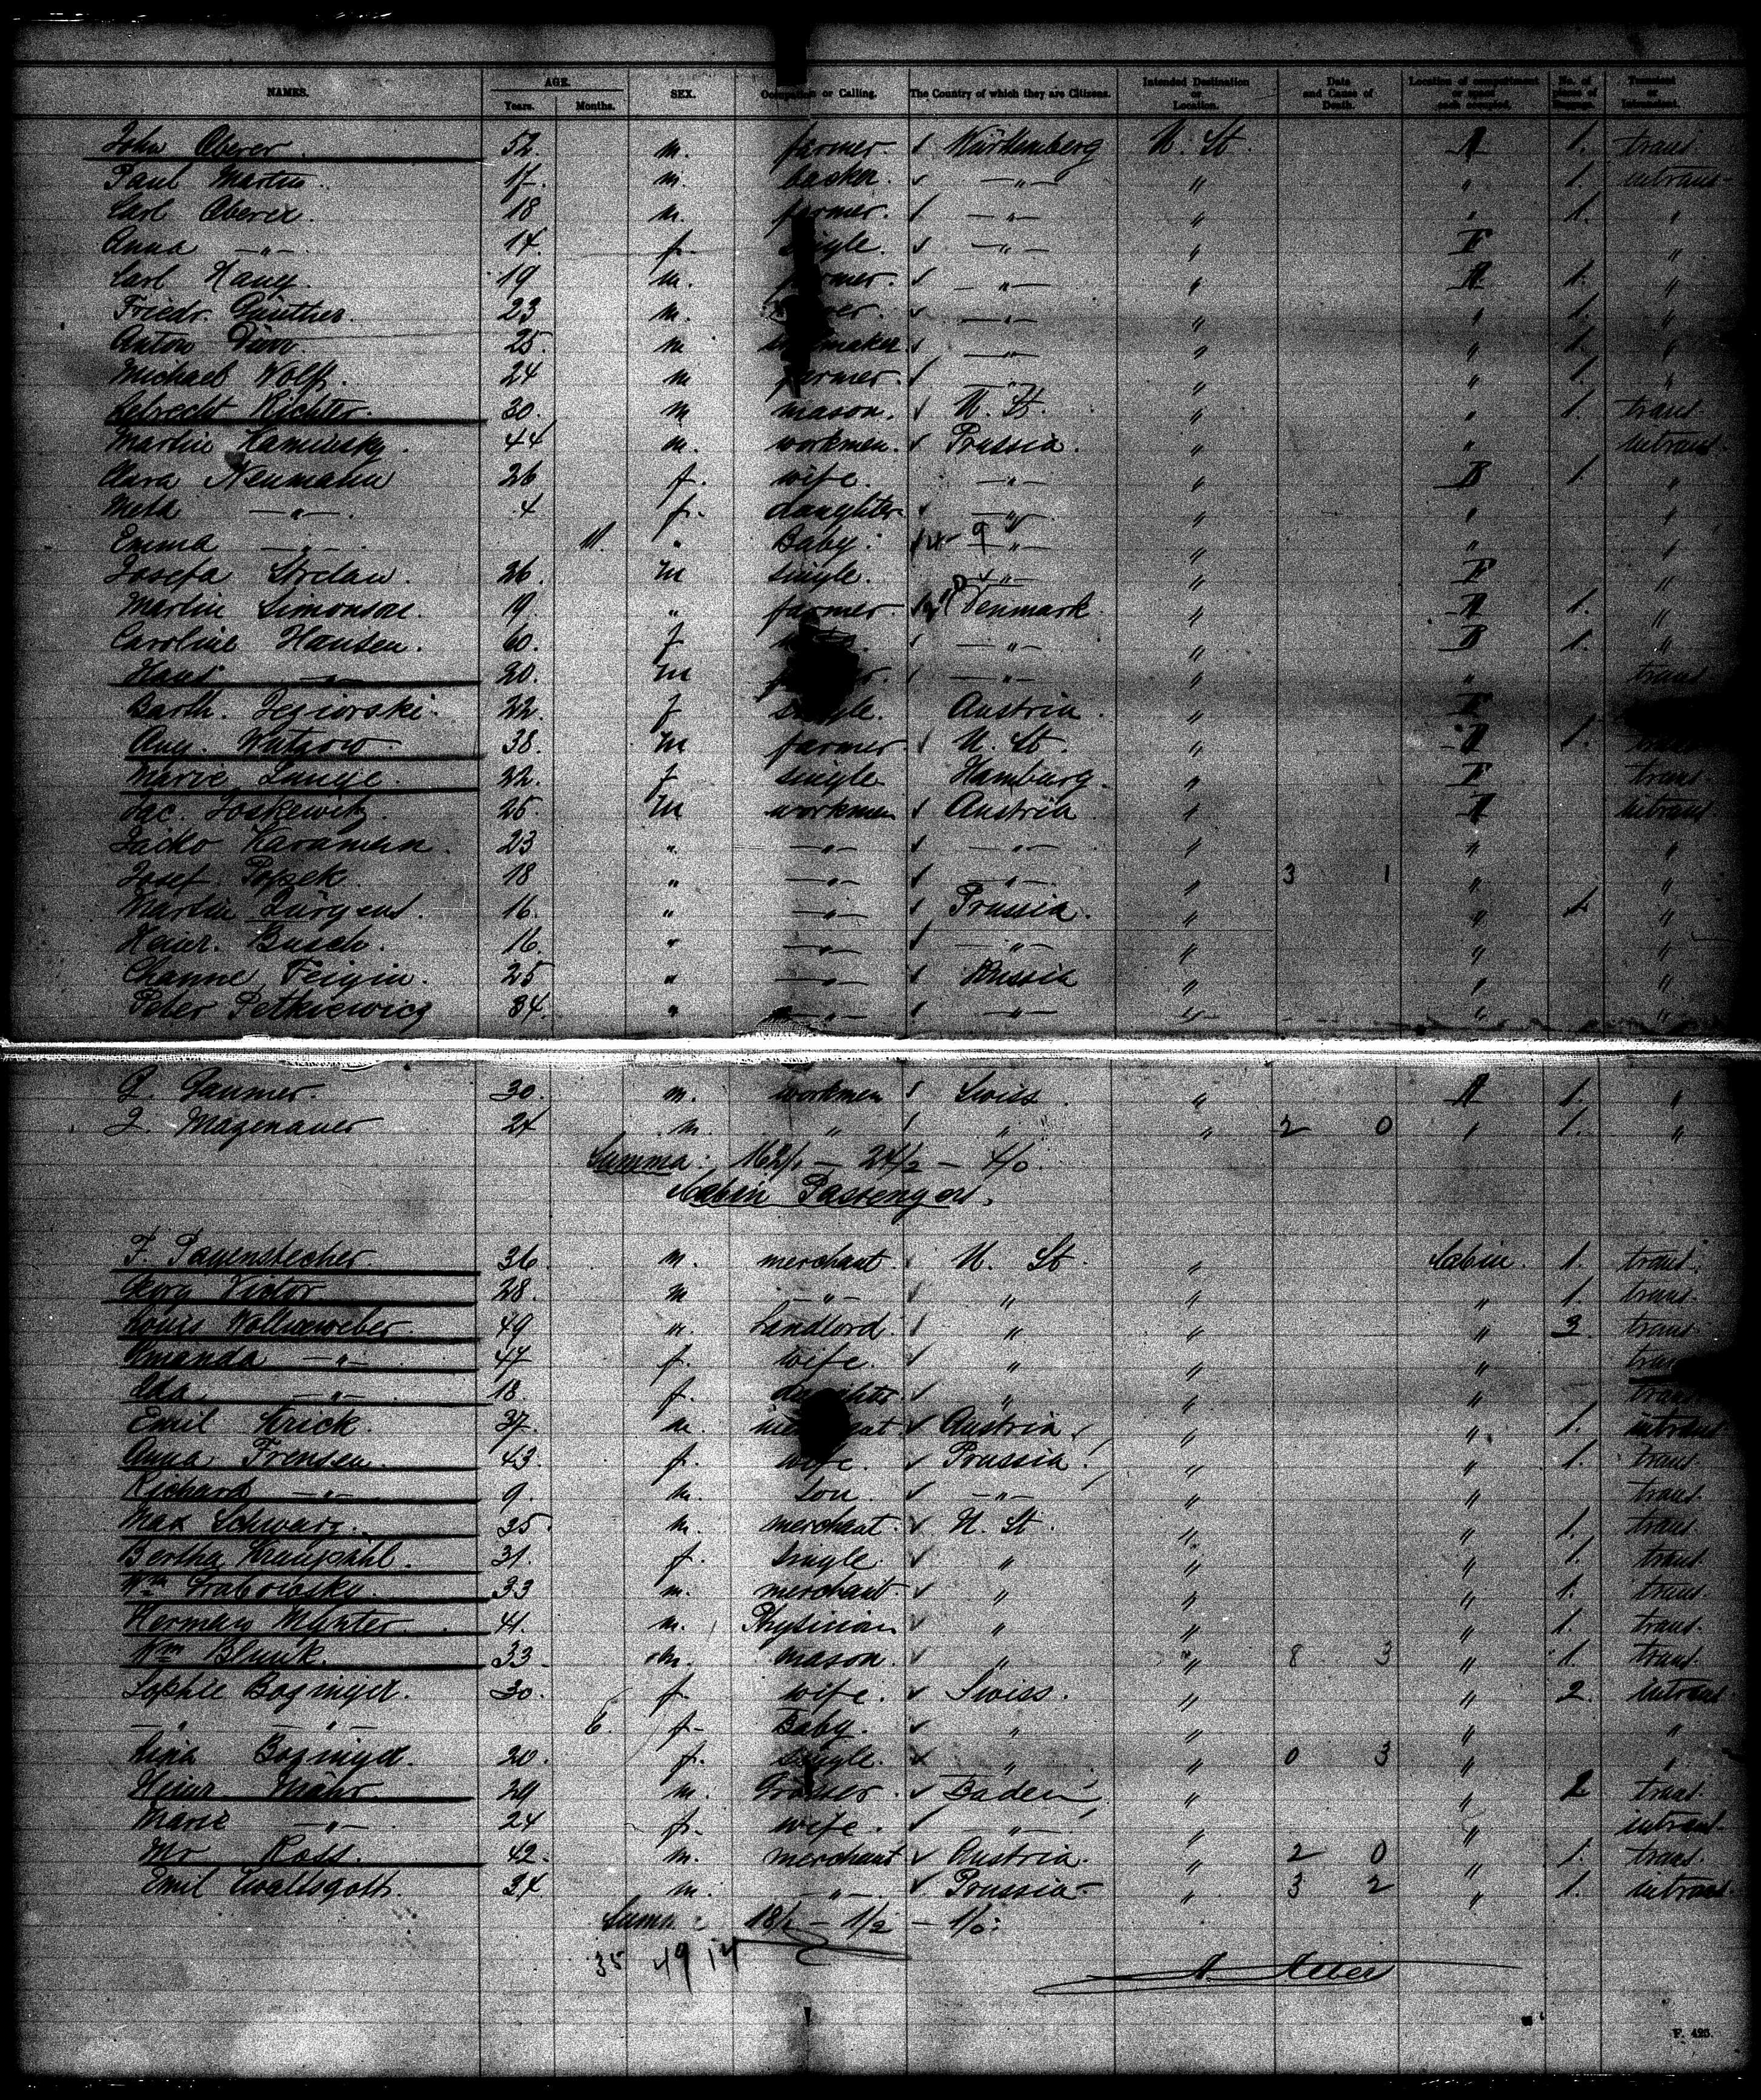 NAMES. AGE. Years. Months. SEX. Occupation or Calling. The Country of which they are Citizens. Intended Destination or Location. Date and Cause of Death. Location of compartment or space each occupied. No. of pieces of Baggage. Transient or Intransient.
John Oberer. 52. m. farmer. Würtemberg U. St. A 1. trans.
Paul Martin. 17. m. basker. —"— " " 1. intrans.
Carl Oberer. 18 m. farmer. —"— " " 1. "
Anna —"— 14. f. single. —"— " F "
Carl Haug. 19 m. farmer. —"— " A 1. "
Friedr. Günther. 23 m. —"— " " 1. "
Anton Dürr. 25. m maker. —"— " " 1. "
Michael Wolff. 24 m farmer. —"— " " 1. "
Lebrecht Richter. 30. m mason. U. St. " " 1. trans.
Martin Kaminsky. 44 m. workmen. Prussia. " " intrans.
Clara Neumann 26 f. wife. —"— " B 1. "
Meta —"— 4 f. daughter. —"— " " "
Emma —"— 11. " Baby. —"— " " "
Josefa Strelau. 26. m single. —"— " F "
Martin Simonsen. 19. " farmer Denmark. " A 1. "
Caroline Hansen. 60. f —"— " B 1. "
Hans —"— 20. m —"— " " trans
Barth. Jeziorski. 22. f single. Austria. " F
Aug. Wutzow. 38. m farmer. U. St. " A 1. trans
Marie Lange. 22. f single Hamburg. " F trans.
Jac. Joskewitz. 25. m workmen Austria " A intrans.
Jacko Karaman. 23 " —"— —"— " " "
Josef Popek. 18 " —"— —"— " 3 1 " "
Martin Jürgens. 16. " —"— Prussia. " " 1. "
Heinr. Busch. 16. " —"— —"— " " "
Channe Feigin. 25 " —"— Russia " " "
Peter Petkiewicz 34. " —"— —"— " " "
G. Gaumer. 30. m. workmen Swiss. " A 1. "
J. Magenauer 24 m. " " " 2 0 " 1. "
Summa: 162/1 — 24/2 — 4/0.
Cabin Passengers.
F. Pagenstecher. 36. m. merchant. U. St. " Cabin. 1. trans.
Georg Victor 28. m —"— " " " 1. trans.
Louis Wollenweber. 49 m. Landlord. " " " 3. trans.
Amanda —"— 47 f. wife. " " " trans
Ida —"— 18. f. " " " trans
Emil Krick. 37. m. Austria. " " 1. intrans.
Anna Frensen. 43. f. wife. Prussia. " " 1. trans.
Richard —"— 9. m. Son. —"— " " trans.
Max Schwarz. 35. m. merchant. U. St. " " 1. trans.
Bertha Kraupahl. 31. f. Single. " " " 1. trans.
Wm Grabowsky. 33 m. merchant " " " 1. trans.
Herman Mynter. 41. m. Physician " " " 1. trans.
Wm Blunk. 33. m. mason. " " 8 3 " 1. trans.
Sophie Bozinger. 30. f. wife. Swiss. " " 2. intrans.
—"— —"— 6. f. Baby. " " " "
Lina Bozinger. 20. f. single. " " 0 3 " "
Heinr. Mähr. 29 m. Baden. " " 2 trans.
Marie —"— 24 f. wife. —"— " " intrans.
Mr Ross. 42. m. merchant Austria. " 2 0 " 1. trans.
Emil 24 m. —"— Prussia " 3 2 " 1. intrans.
Suma: 18/1 — 1/2 — 1/0.
35 49 14
F. 425.